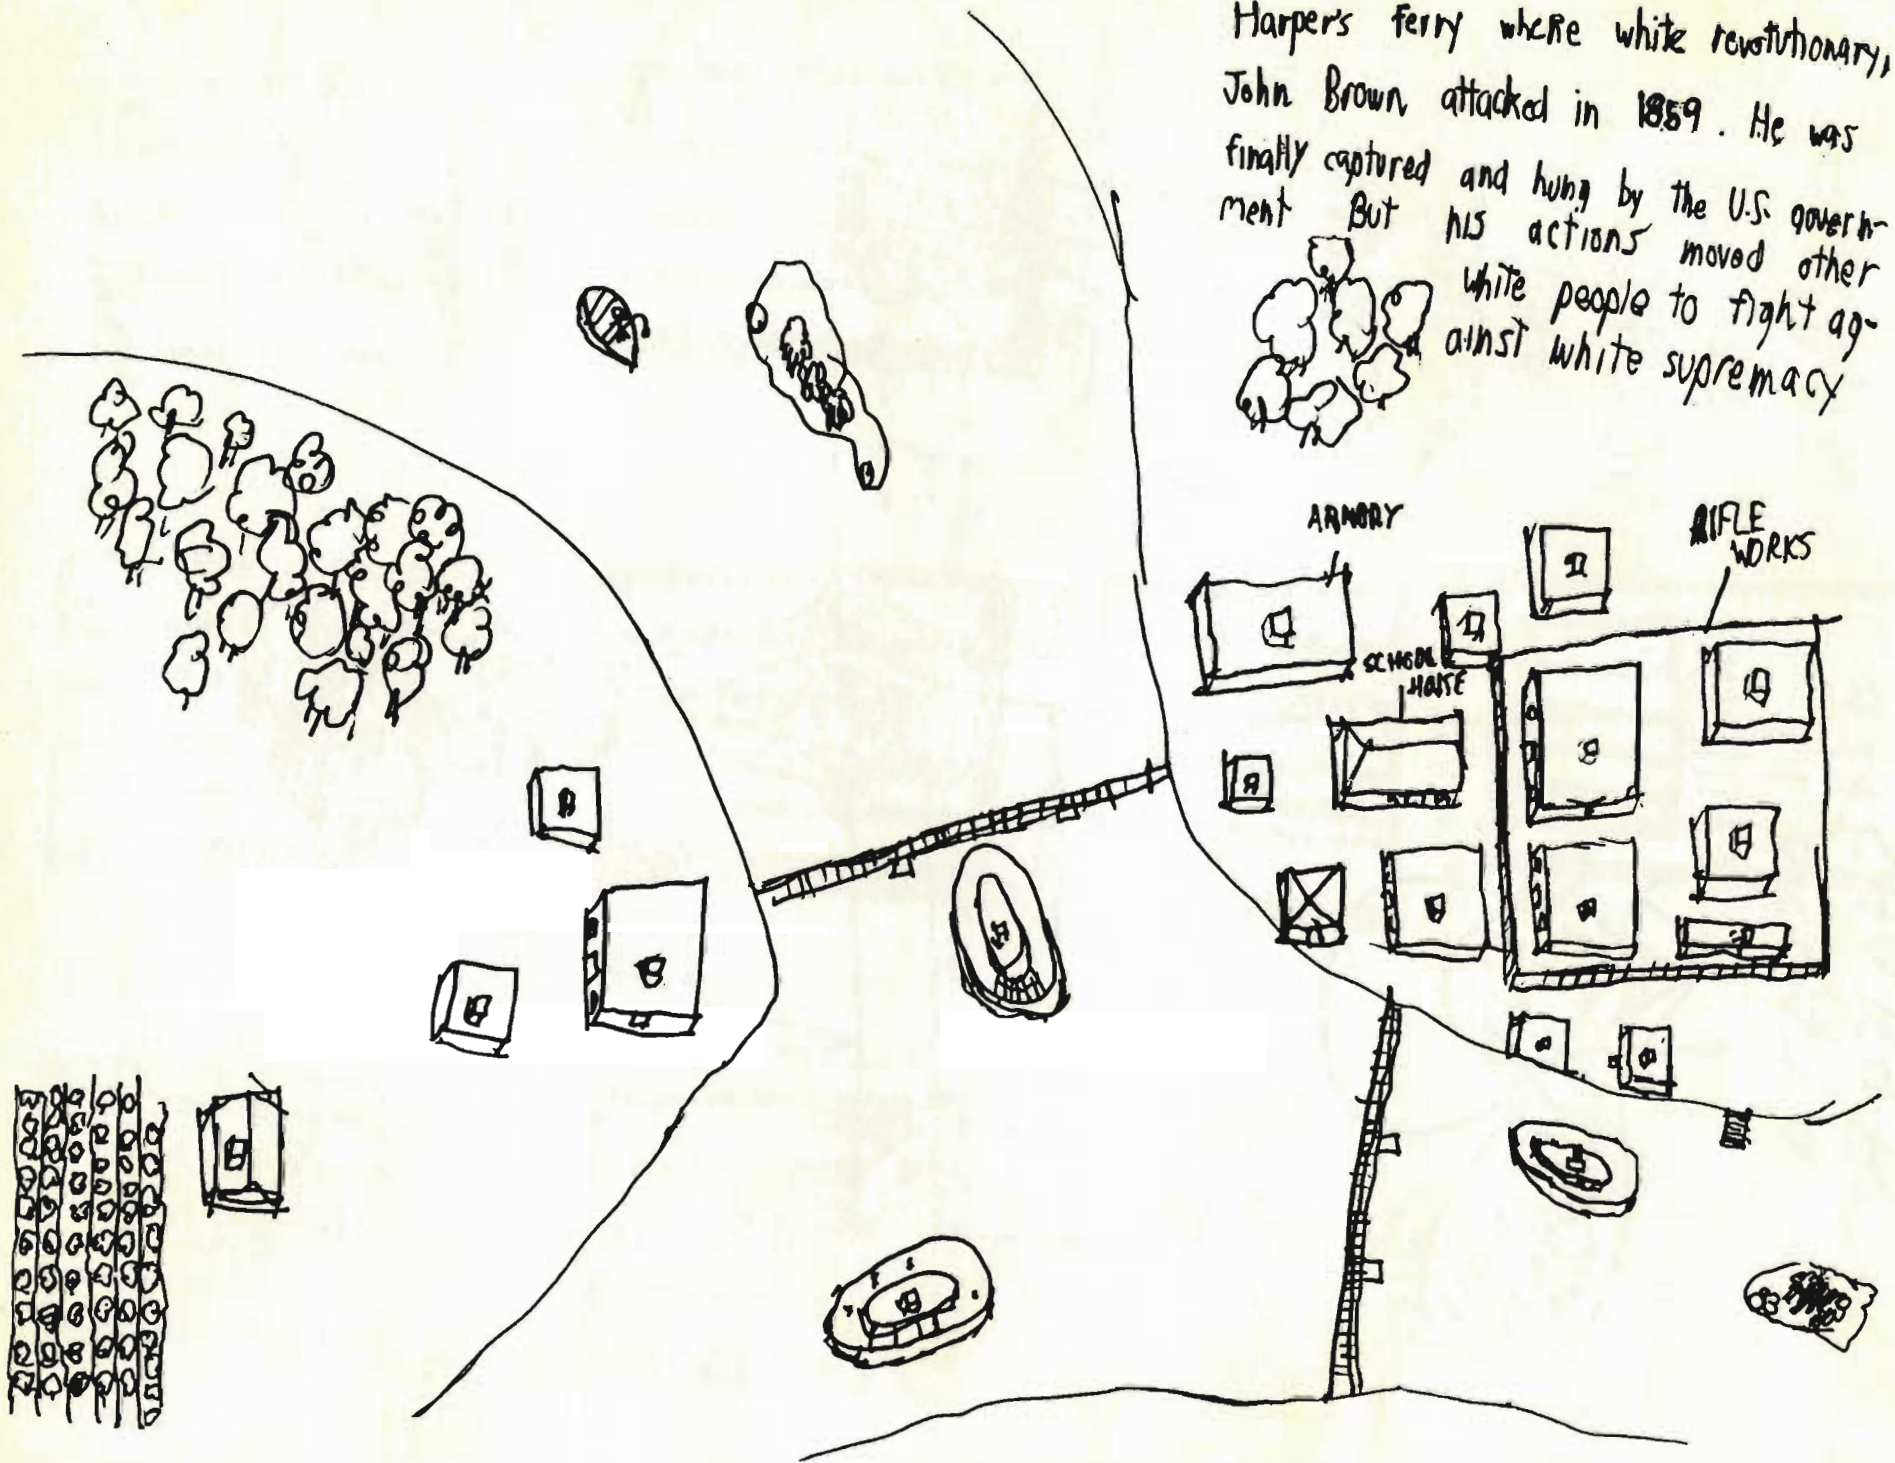 Harper's Ferry where white revolutionary,
John Brown attacked in 1859. He was
finally captured and hung by the U.S. govern-
ment But his actions moved other
white people to fight ag-
ainst white supremacy
ARMORY
RIFLE
WORKS
SCHOOL
HOUSE